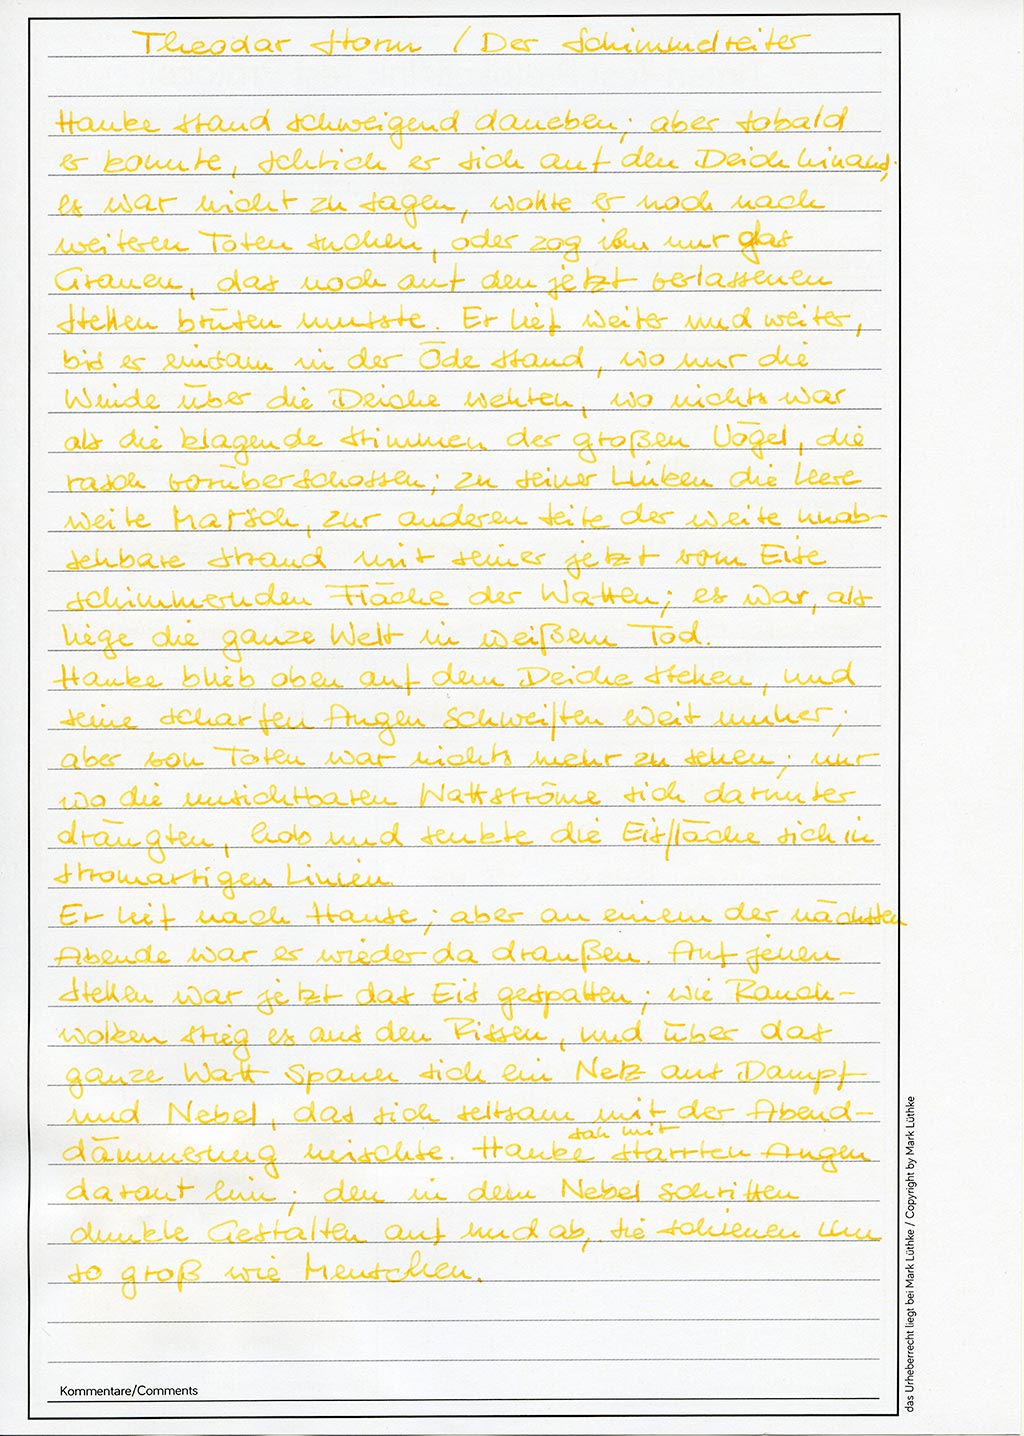 Theodor Storm / Der Schimmelreiter
Hauke stand schweigend daneben; aber sobald
er konnte, schlich er sich auf den Deich hinaus;
es war nicht zu sagen, wollte er noch nach
weiteren Toten suchen, oder zog ihn nur das
Grauen, das noch auf den jetzt verlassenen
Stellen brüten musste. Er lief weiter und weiter,
bis er einsam in der Öde stand, wo nur die
Winde über die Deiche wehten, wo nichts war
als die klagende Stimmen der großen Vögel, die
rasch vorüberschossen; zu seiner Linken die leere
weite Marsch, zur anderen Seite der weite unab-
sehbare Strand mit seiner jetzt vom Eise
schimmernden Fläche der Watten; es war, als
liege die ganze Welt in weißem Tod.
Hauke blieb oben auf dem Deiche stehen, und
seine scharfen Augen schweiften weit umher;
aber von Toten war nichts mehr zu sehen; nur
wo die unsichtbaren Wattströme sich darunter
drängten, hob und senkte die Eisfläche sich in
stromartigen Linien.
Er lief nach Hause; aber an einem der nächsten
Abende war er wieder da draußen. Auf jenen
Stellen war jetzt das Eis gespalten; wie Rauch-
wolken stieg es aus den Rissen, und über das
ganze Watt spann sich ein Netz aus Dampf
und Nebel, das sich seltsam mit der Abend-
dämmerung mischte. Hauke sah mit starrten Augen
darauf hin; den in dem Nebel schritten
dunkle Gestalten auf und ab, sie schienen ihm
so groß wie Menschen.
Kommentare/Comments
das Urheberrecht liegt bei Mark Lüthke / Copyright by Mark Lüthke